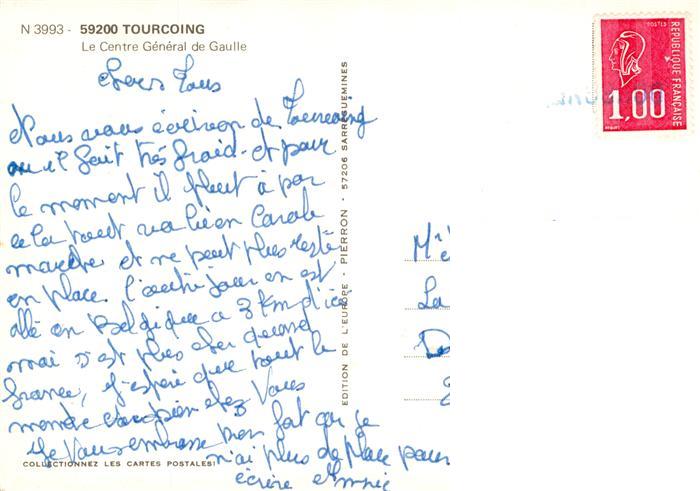 N 3993 - 59200 TOURCOING
Le Centre Général de Gaulle
Chers Tous
Nous vous écrivons de Tourcoing
ou il fait très froid. et pour
le moment il pleut à par
cela tout va bien Carole
marche et ne peut plus resté
en place. l'autre jour on est
allé en Belgique a 3 km d'ici
mai s'est plus cher quand
france, j'espère que tout le
monde chez Vous
Je Vous embrasse bien fort car je
n'ai plus de place pour
écrire
COLLECTIONNEZ LES CARTES POSTALES!
EDITION DE L'EUROPE - PIERRON - 57206 SARREGUEMINES
POSTES
REPUBLIQUE FRANÇAISE
1,00
La